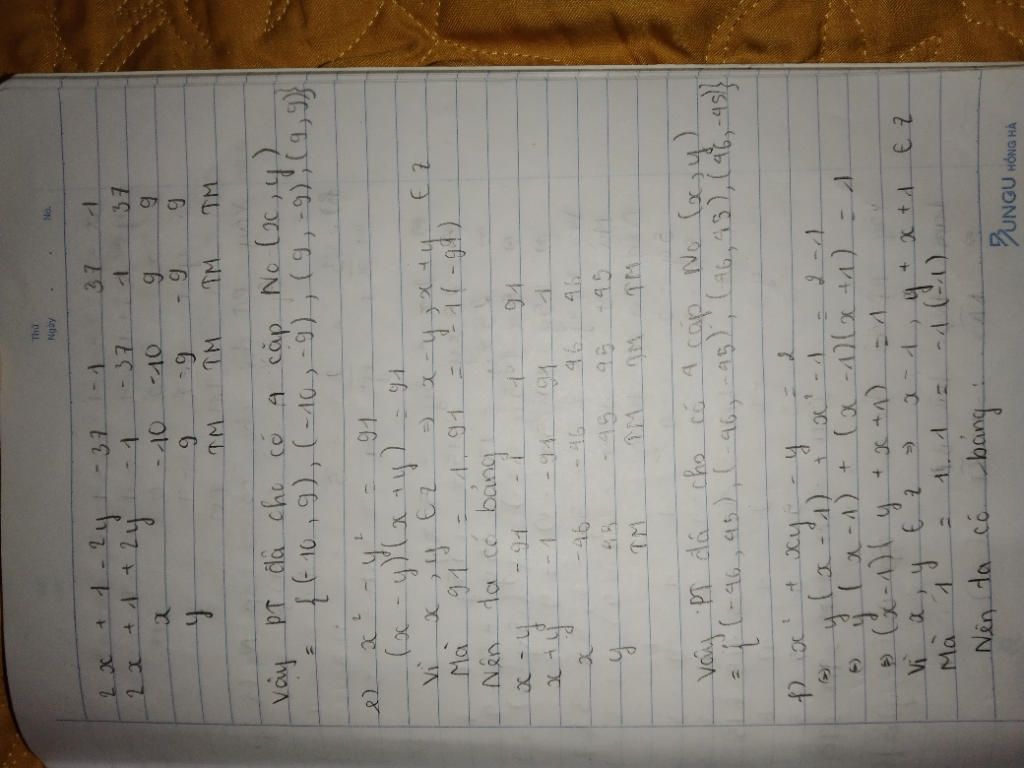 Thứ
Ngày . . No.
2x + 1 - 2y -37 -1 37 1
2x + 1 + 2y -1 -37 1 37
x -10 -10 9 9
y 9 -9 -9 9
TM TM TM TM
Vậy PT đã cho có 4 cặp No (x, y)
= {(-10, 9), (-10, -9), (9, -9), (9, 9)}
e) x² - y² = 91
(x - y)(x + y) = 91
Vì x, y ∈ Z => x - y; x + y ∈ Z
Mà 91 = 1. 91 = -1 (-91)
Nên ta có bảng
x - y -91 -1 1 91
x + y -1 -91 91 1
x -46 -46 46 46
y 45 -45 45 -45
TM TM TM TM
Vậy PT đã cho có 4 cặp No (x, y)
= {(-46, 45), (-46, -45), (46, 45), (46, -45)}
f) x² + xy - y = 2
<=> y(x - 1) + x² - 1 = 2 - 1
<=> y(x - 1) + (x - 1)(x + 1) = 1
<=> (x - 1)(y + x + 1) = 1
Vì x, y ∈ Z => x - 1, y + x + 1 ∈ Z
Mà 1 = 1. 1 = -1 (-1)
Nên ta có bảng:
BUNGU HỒNG HÀ